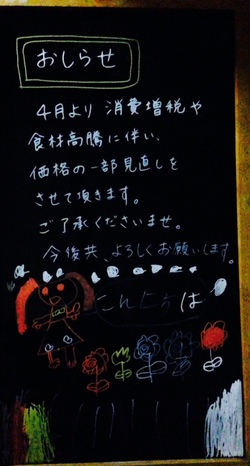 おしらせ
4月より 消費増税や
食材高騰に伴い、
価格の一部見直しを
させて頂きます。
ご了承くださいませ。
今後共、よろしくお願いします。
こんにちは